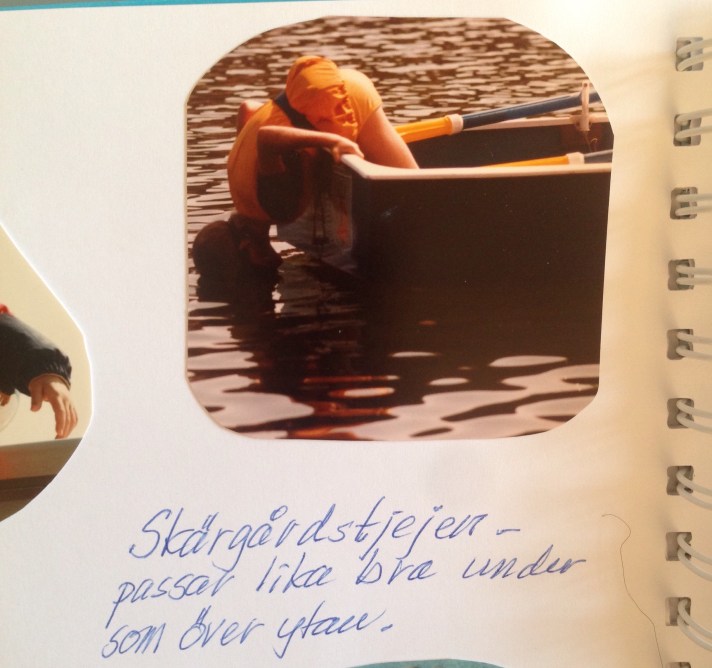 Skärgårdstjejen -
passar lika bra under
som över ytan.